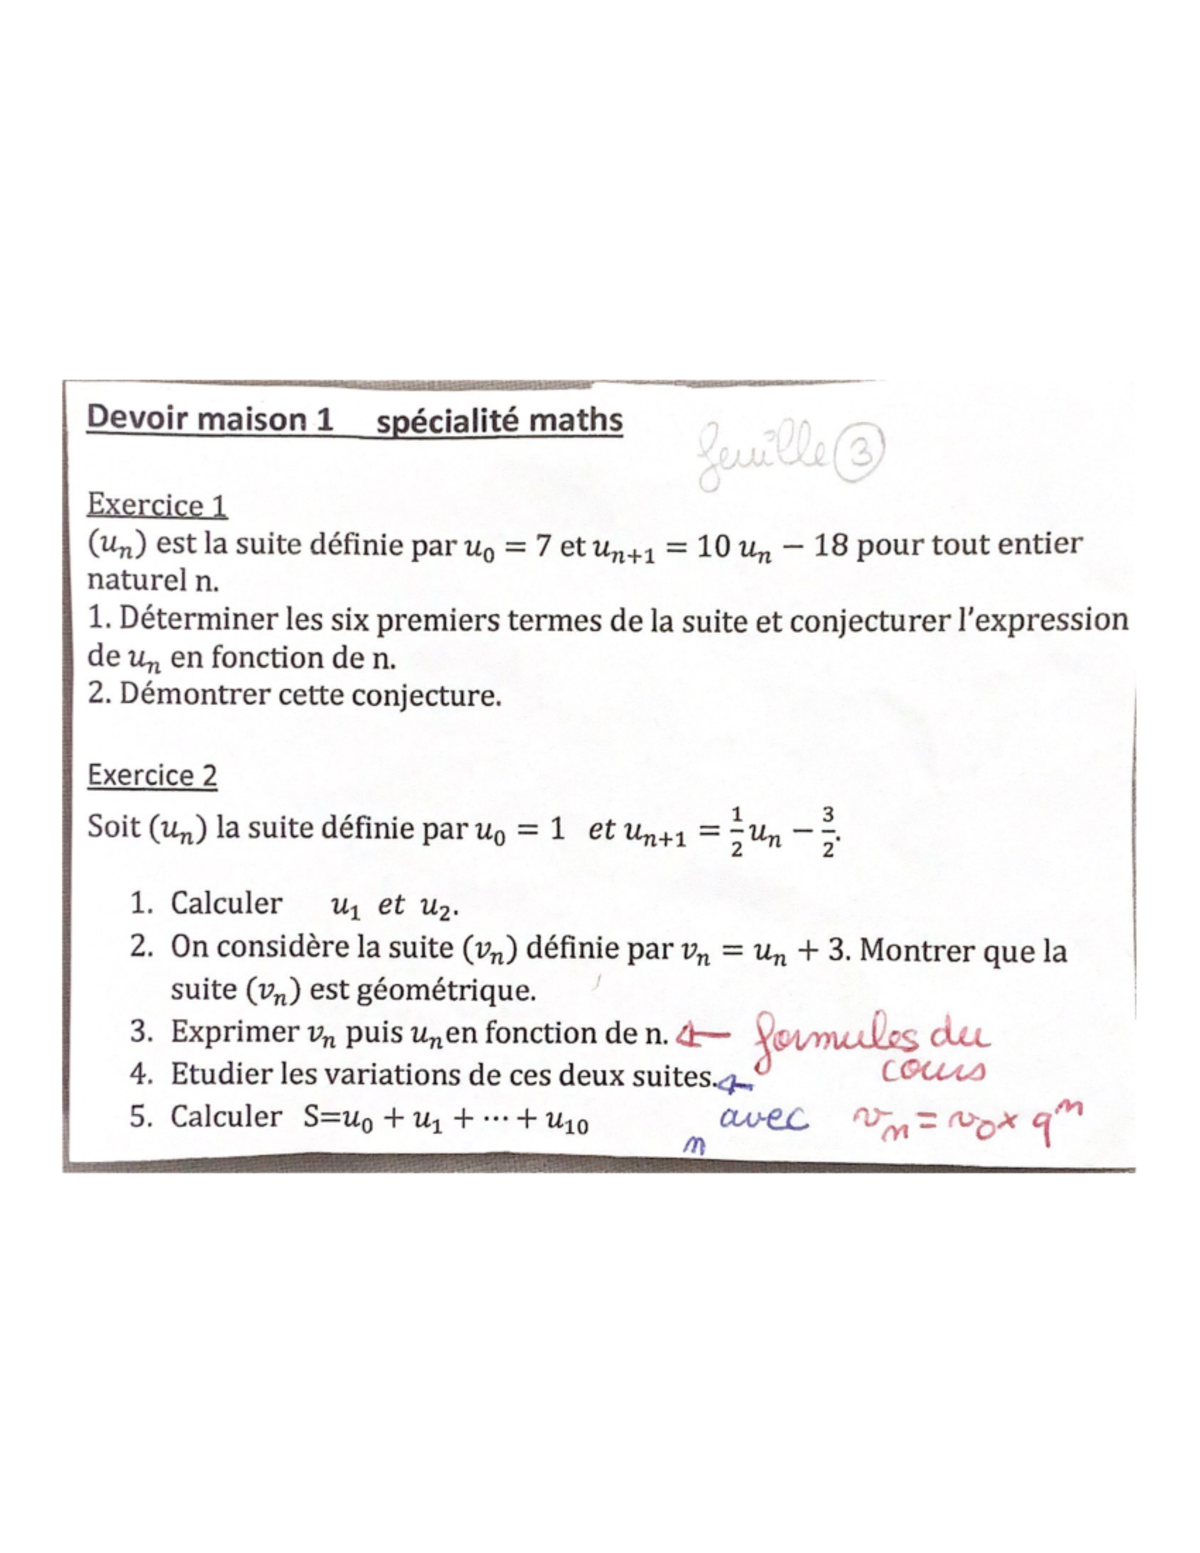 Devoir maison 1 spécialité maths
feuille 3
Exercice 1
(uₙ) est la suite définie par u₀ = 7 et uₙ₊₁ = 10 uₙ − 18 pour tout entier
naturel n.
1. Déterminer les six premiers termes de la suite et conjecturer l'expression
de uₙ en fonction de n.
2. Démontrer cette conjecture.
Exercice 2
Soit (uₙ) la suite définie par u₀ = 1 et uₙ₊₁ = 1/2 uₙ − 3/2.
1. Calculer u₁ et u₂.
2. On considère la suite (vₙ) définie par vₙ = uₙ + 3. Montrer que la
suite (vₙ) est géométrique.
3. Exprimer vₙ puis uₙen fonction de n. ← formules du
cours
4. Etudier les variations de ces deux suites. ←
5. Calculer S=u₀ + u₁ + ⋯ + u₁₀
avec vₙ = v₀ × qⁿ
n